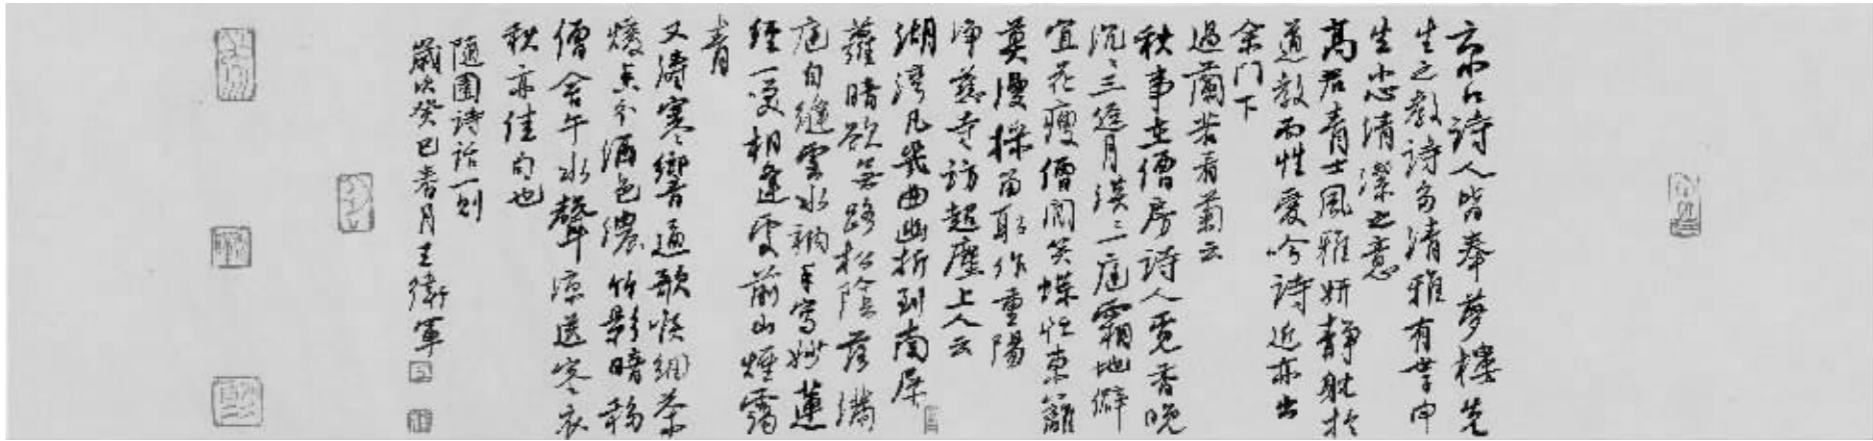 京口诗人皆奉夢樓先
生之教诗多清雅有
生小心清潔之意
高君青士風雅妍静躭於
道教而性爱吟诗近亦出
余门下
過蘭若看菊云
秋事在僧房诗人覓香晚
沉三徑月淡一庭霜地僻
宜花瘦僧閑笑蝶忙東籬
莫漫採留取作重陽
净慈寺訪超塵上人云
湖湾凡幾曲幽折到南屏
蘿暗欲無路松陰落满
庭自縫雲水衲手寫妙蓮
經一笑相逢處前山煙靄
青
又濤寒響通歌悵細茶
煖香分酒色濃竹影暗移
僧舍午水聲凉送客衣
秋亦佳句也
随園诗话一则
歲次癸巳春月王衛軍